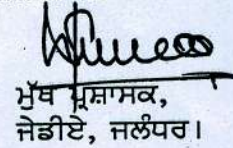 ਮੁੱਖ ਪ੍ਰਸ਼ਾਸਕ,
ਜੇਡੀਏ, ਜਲੰਧਰ।